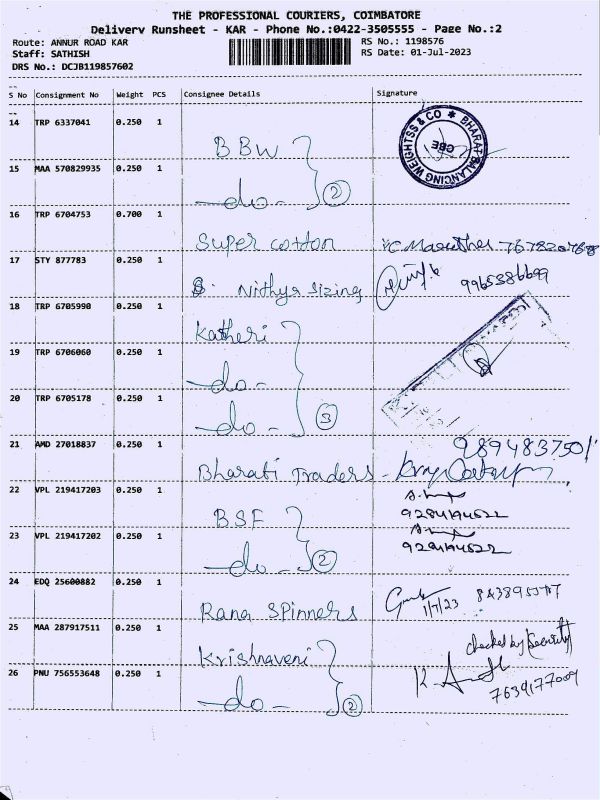 THE PROFESSIONAL COURIERS, COIMBATORE
Delivery Runsheet - KAR - Phone No.:0422-3505555 - Page No.:2
Route: ANNUR ROAD KAR
RS No.: 1198576
Staff: SATHISH
RS Date: 01-Jul-2023
DRS No.: DCJB119857602
S No Consignment No Weight PCS Consignee Details Signature
14 TRP 6337041 0.250 1
BBW
BHARAT BALANCING WEIGHTSS & CO ★
CBE
15 MAA 570829935 0.250 1
-do- 2
16 TRP 6704753 0.700 1
Super cotton
17 STY 877783 0.250 1
Nithya sizing 9965386699
18 TRP 6705990 0.250 1
Katheri
19 TRP 6706060 0.250 1
-do-
20 TRP 6705178 0.250 1
-do- 3
21 AMD 27018837 0.250 1
Bharati Traders -
22 VPL 219417203 0.250 1
BSF
23 VPL 219417202 0.250 1
-do- 2
24 EDQ 25600882 0.250 1
Rana Spinners 1/7/23
25 MAA 287917511 0.250 1
Krishnaveni
checked by Security
26 PNU 756553648 0.250 1
-do- 2
7639177009